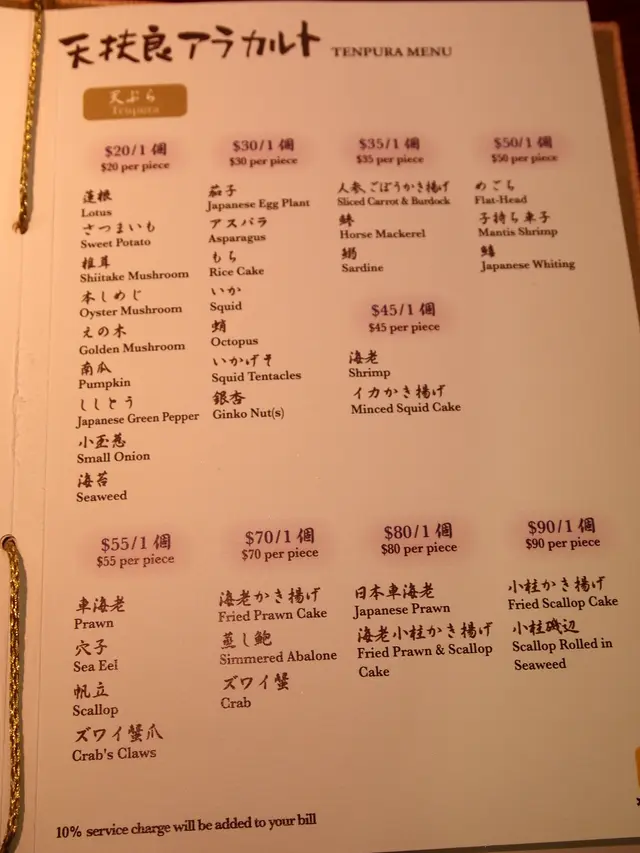 天扶良アラカルト TENPURA MENU
天ぷら
Tenpura
$20/1 個
$20 per piece
蓮根
Lotus
さつまいも
Sweet Potato
椎茸
Shiitake Mushroom
本しめじ
Oyster Mushroom
えの木
Golden Mushroom
南瓜
Pumpkin
ししとう
Japanese Green Pepper
小玉葱
Small Onion
海苔
Seaweed
$30/1 個
$30 per piece
茄子
Japanese Egg Plant
アスパラ
Asparagus
もち
Rice Cake
いか
Squid
蛸
Octopus
いかげそ
Squid Tentacles
銀杏
Ginko Nut(s)
$35/1 個
$35 per piece
人参ごぼうかき揚げ
Sliced Carrot & Burdock
Horse Mackerel
Sardine
$45/1 個
$45 per piece
海老
Shrimp
イカかき揚げ
Minced Squid Cake
$50/1 個
$50 per piece
めごち
Flat-Head
子持ち車子
Mantis Shrimp
鱚
Japanese Whiting
$55/1 個
$55 per piece
車海老
Prawn
穴子
Sea Eel
帆立
Scallop
ズワイ蟹爪
Crab's Claws
$70/1 個
$70 per piece
海老かき揚げ
Fried Prawn Cake
蒸し鮑
Simmered Abalone
ズワイ蟹
Crab
$80/1 個
$80 per piece
日本車海老
Japanese Prawn
海老小柱かき揚げ
Fried Prawn & Scallop
Cake
$90/1 個
$90 per piece
小柱かき揚げ
Fried Scallop Cake
小柱磯辺
Scallop Rolled in
Seaweed
10% service charge will be added to your bill